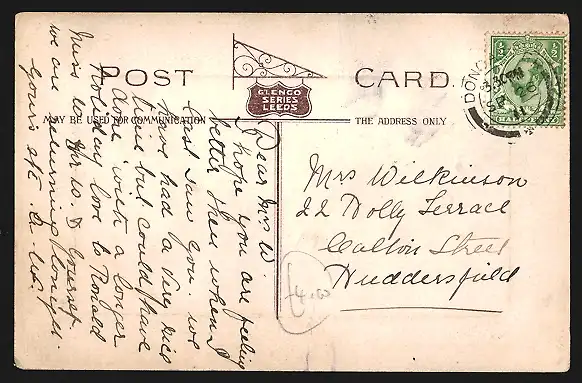 POST CARD.
GLENCO
SERIES
LEEDS
MAY BE USED FOR COMMUNICATION
THE ADDRESS ONLY
Dear Mrs W.
I hope you are feeling
better then when I
last saw you. we
have had a very nice
time but could have
done with a longer
Holiday love to Ronald
Miss
& yourself
we are returning tonight
yours afe.
Mrs Wilkinson
22 Dolly Terrace
Calton Street
Huddersfield
DONC
3.30 PM
SP 26
11